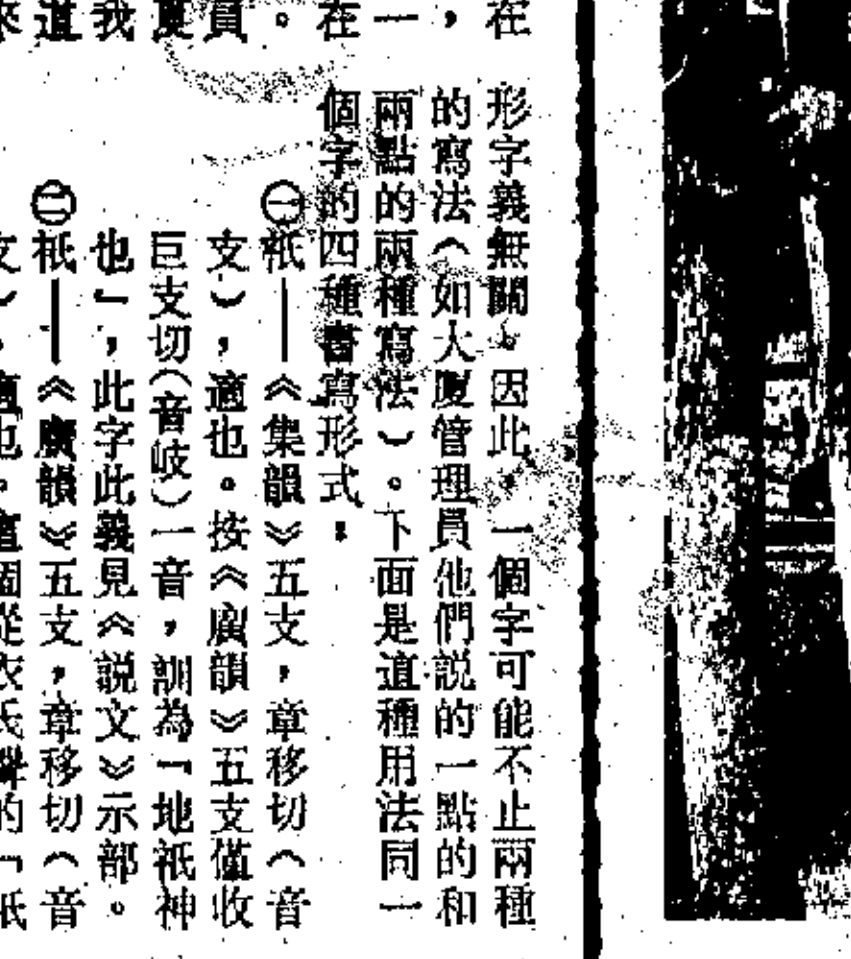 在
，
一
在
。
員
厦
我
這
形字義無關。因此，一個字可能不止兩種
的寫法（如大厦管理員他們説的一點的和
兩點的兩種寫法）。下面是這種用法同一
個字的四種書寫形式：
㊀祇——《集韻》五支，章移切（音
支），適也。按《廣韻》五支僅收
巨支切（音岐）一音，訓為「地祇神
也」，此字此義見《説文》示部。
㊁衹——《廣韻》五支，章移切（音
），適也。這個從衣氏聲的「衹